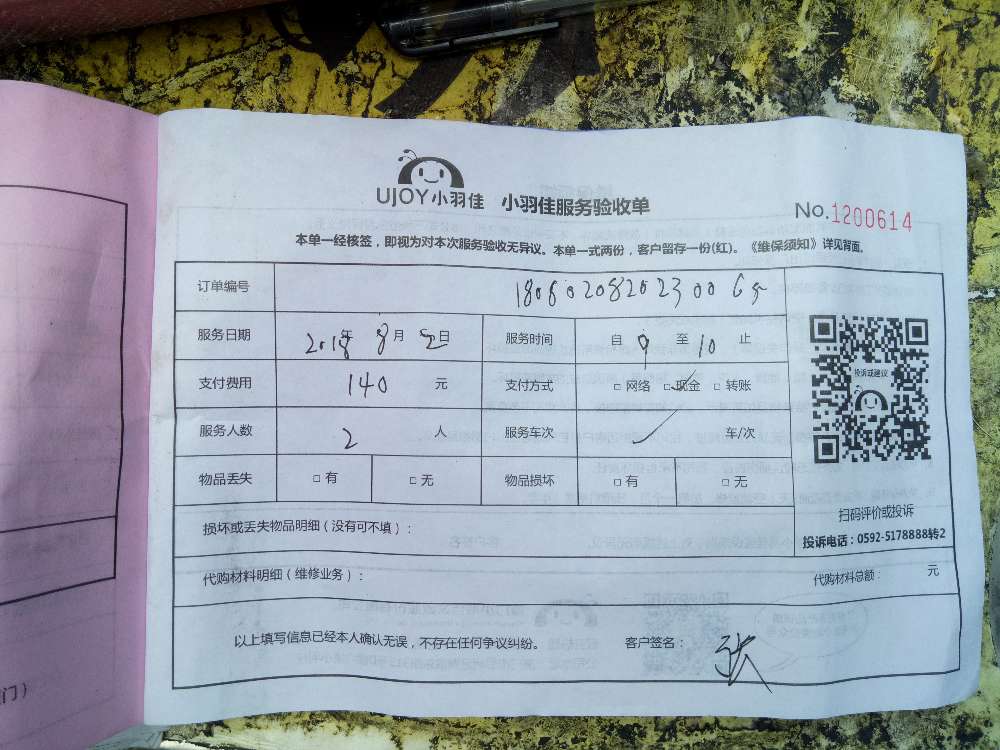 UJOY小羽佳 小羽佳服务验收单
No.1200614
本单一经核签，即视为对本次服务验收无异议。本单一式两份，客户留存一份(红)。《维保须知》详见背面。
订单编号
服务日期 2018年 8月 2日 服务时间 自 9 至 10 止
支付费用 140 元 支付方式 □ 网络 □ 现金 □ 转账
服务人数 2 人 服务车次 车/次
物品丢失 □ 有 □ 无 物品损坏 □ 有 □ 无
投诉或建议
扫码评价或投诉
投诉电话：0592-5178888转2
损坏或丢失物品明细（没有可不填）：
代购材料明细（维修业务）： 代购材料总额： 元
以上填写信息已经本人确认无误，不存在任何争议纠纷。 客户签名： 张
门）